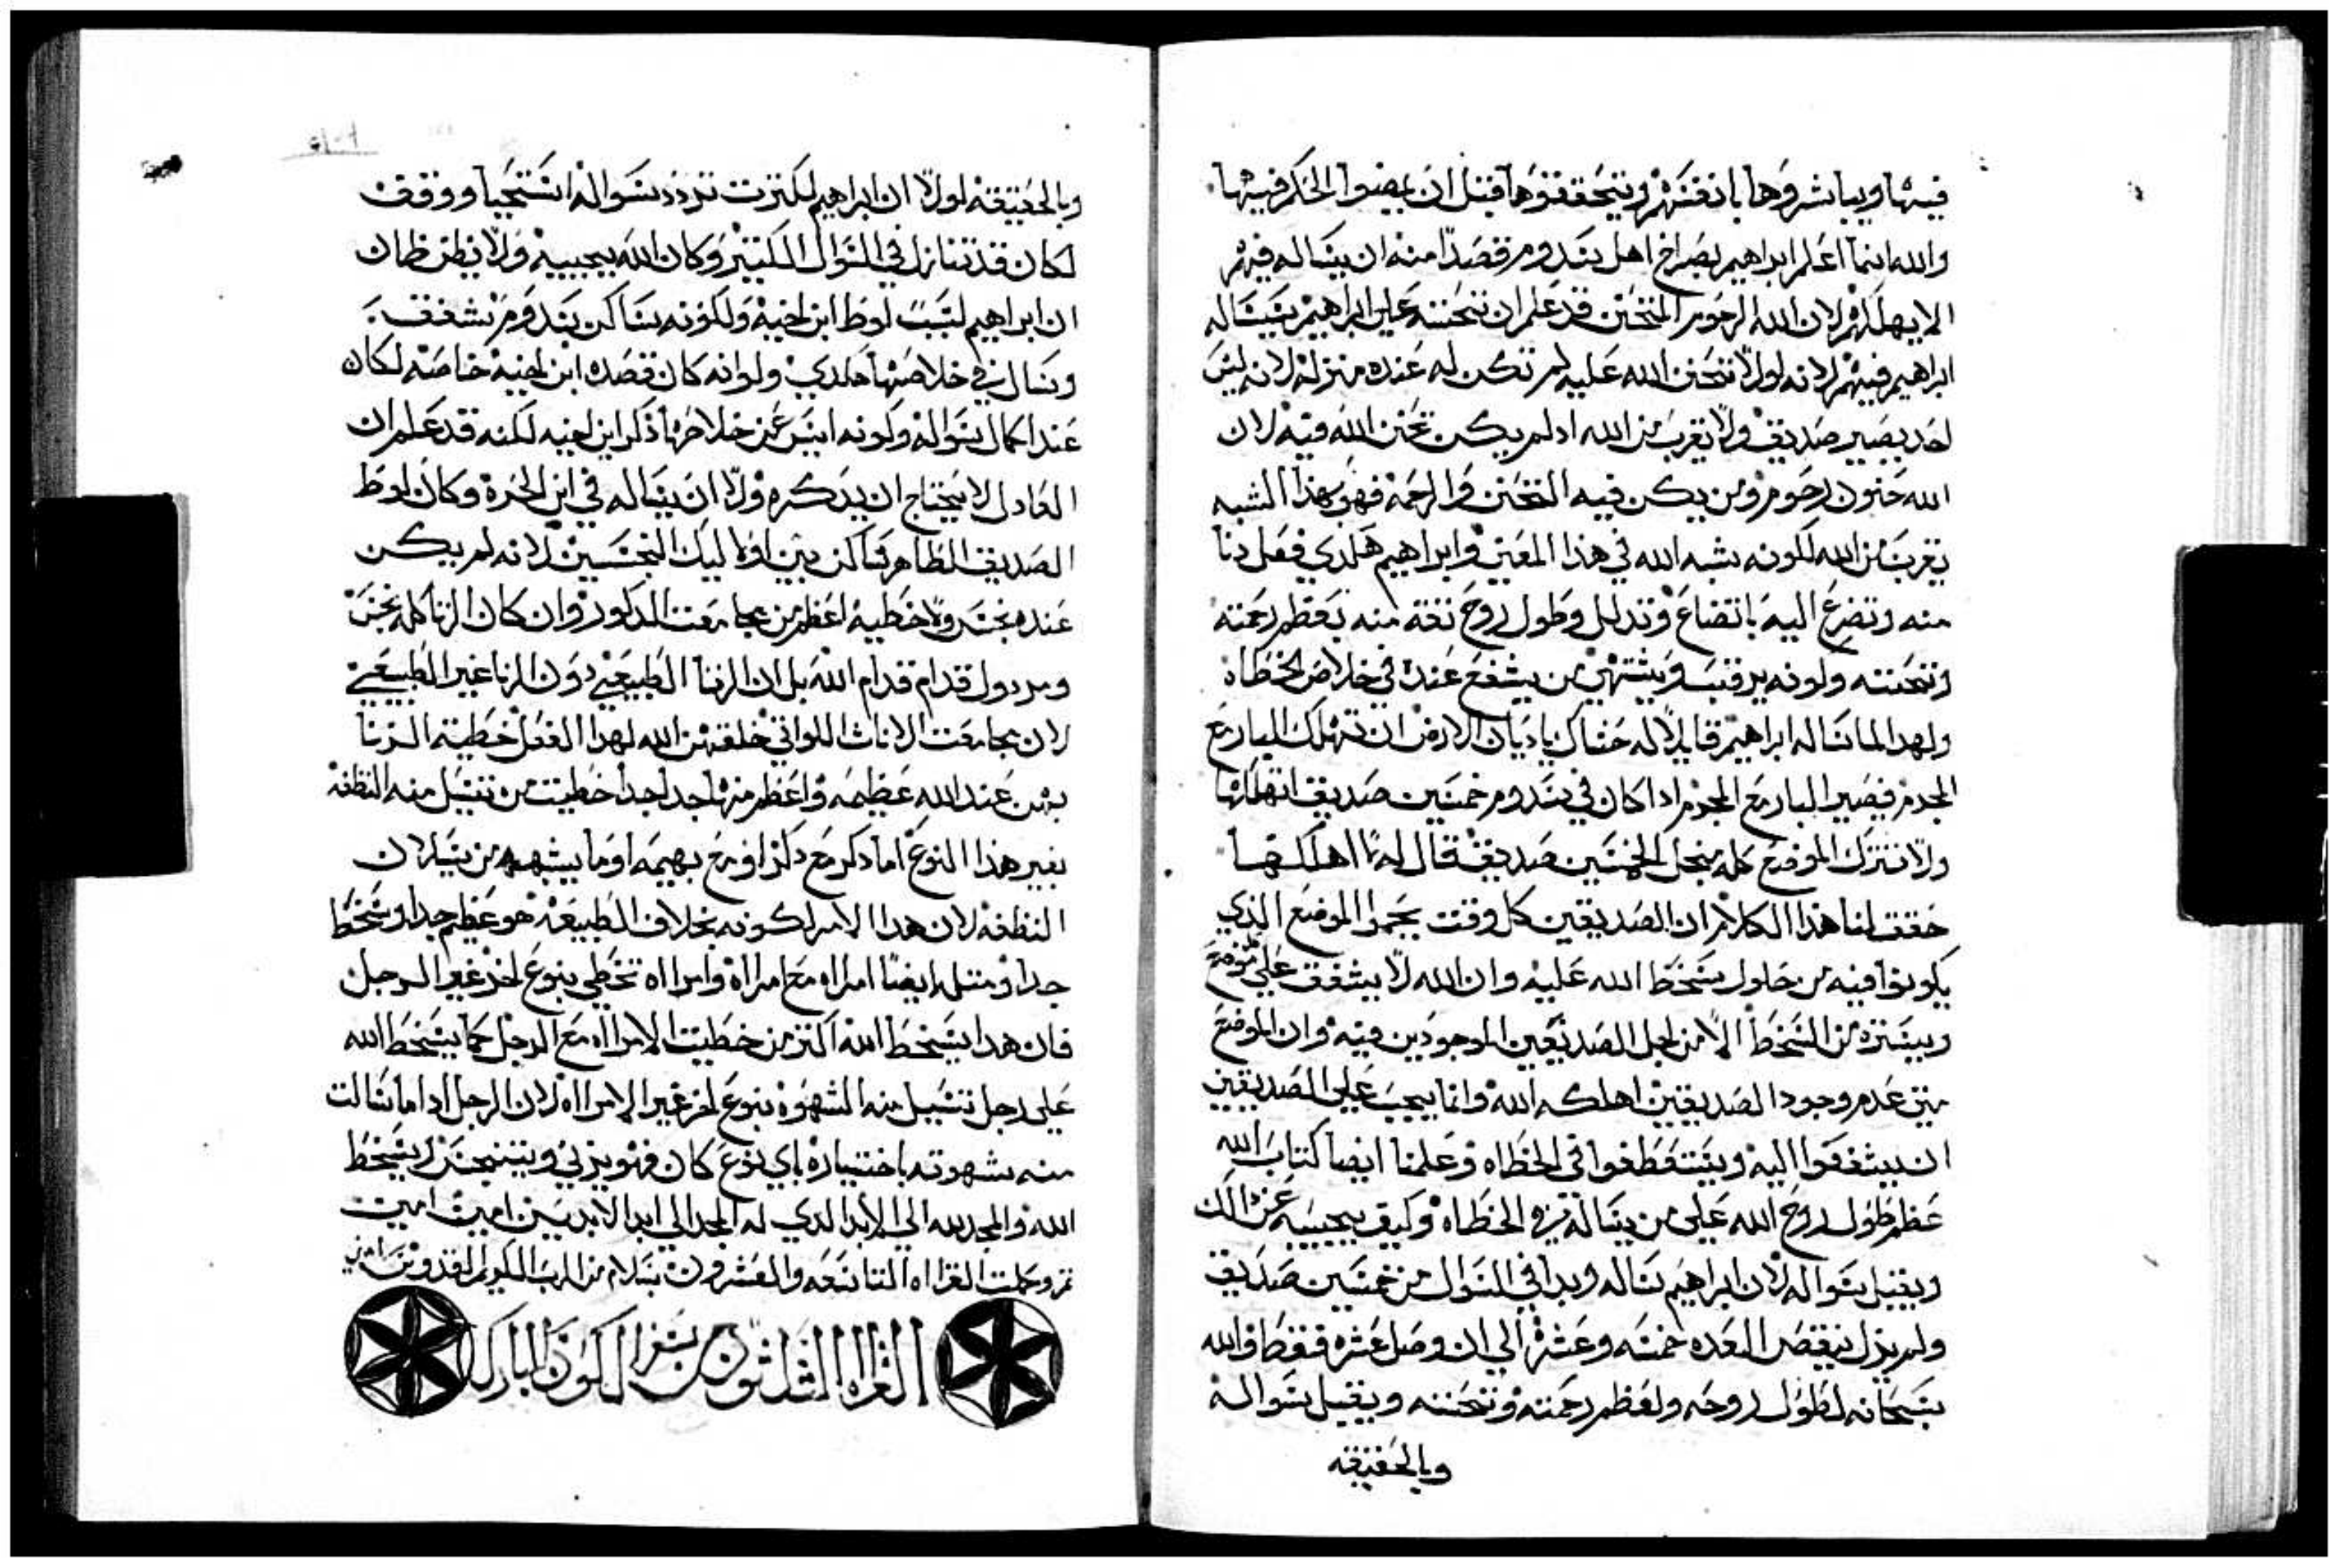 فيها ويباشروها بانفسهم ويتحققوها قبل ان يمضوا الحكم فيها
والله انما اعلم ابراهيم بصراخ اهل سدوم قصدًا منه ان يساله فيهم
الا يهلكهم لان الله الرحوم المتحنن قد علم ان تحننه على ابراهيم يساله
ابراهيم فيهم لانه لولا تحنن الله عليه لم تكن له عنده منزلة لانه ليس
احد يصير صديق ولا يقرب من الله اد لم يكن تحنن الله فيه لان
الله حنون رحوم ومن يكن فيه التحنن والرحمة فهو بهذا الشبه
يقرب من الله لكونه يشبه الله في هذا المعنى وابراهيم هكدي فعل دنا
منه وتضرع اليه باتضاع وتدلل وطول روح تقه منه بعظم رحمته
وتحننه ولونه يرقب ويشتهي من يشفع عنده في خلاص الخطاه
ولهدا لما ساله ابراهيم قايلًا له حشاك ياديان الارض ان تهلك البار مع
المجرم فيصير البار مع المجرم ادا كان في سدوم خمسين صديق اتهلكها
ولا تترك الموضع كله منجل الخمسين صديق قال له لا اهلكها
حقق لنا هدا الكلام ان الصديقين كل وقت يحموا الموضع الذي
يكونوا فيه من حلول سخط الله عليه وان الله لا يشفق على موضع
ويستره من السخط الا من اجل الصديقين الموجودين فيه وان الموضع
متى عدم وجود الصديقين اهلكه الله وانما يجب على الصديقين
ان يشفقوا اليه ويتعطفوا في الخطاه وعلمنا ايضا كتاب الله
عظم طول روح الله على من يساله في الخطاه وكيف يجيبه عن دالك
ويقبل سواله لان ابراهيم ساله وبدا في السوال من خمسين صديق
ولم يزل ينقص العده خمسه وعشرة الي ان وصل عشره فقط والله
سبحانه لطول روحه ولعظم رحمته وتحننه ويقبل سواله
وبالحقيقه
وبالحقيقه لولا ان ابراهيم لكترت تردد سواله استحيا ووقف
لكان قد تنازل في السوال الكتير وكان الله يجيبه ولا يظن ظان
ان ابراهيم لسبب لوط ابن اخيه ولكونه ساكن سدوم شفق
وسال في خلاصها هكدي ولوانه كان قصده ابن اخيه خاصه لكان
عند اكمال سواله وكونه ايس من خلاصها ذكر ابن اخيه لكنه قد علم ان
العادل لا يحتاج ان يدكره ولا ان يساله في ابن الحرة وكان لوط
الصديق الطاهر ساكن بين اوليك النجسين لانه لم يكن
عنده نجس ولا خطيه اعظم من مجامعت الدكور وان كان الزنا كله نجس
ومردول قدام قدام الله بل ان الزنا الطبيعي دون الزنا غير الطبيعي
لان مجامعت الاناث اللواتي خلقهن الله لهدا الفعل خطية الزنا
بهن عند الله عظيمه واعظم منها جدا جدا خطيت من تسيل منه النظفه
بغير هدا النوع اما دكر مع دكر او مع بهيمه او ما يشبهه من سيلان
النظفه لان هدا الامر لكونه بخلاف الطبيعه هو عظيم جدا وسخط
جدا ومتله ايضًا امراه مع امراة وامراه تخطي بنوع اخر غير الرجل
فان هدا يسخط الله اكتر من خطيت الامراه مع الرجل كما يسخط الله
على رجل تسيل منه الشهوه بنوع اخر غير الامراه لان الرجل ادا ما سالت
منه شهوته باختياره باي نوع كان فهو يزني ويتنجس ويسخط
الله والمجد لله الي الابد الدي له المجد الي ابد الابدين امين امين
تم وكملت القراه التاسعه والعشرون بسلام من الرب الكريم القدوس امين
القراه الثلثون من سفر الكون المبارك